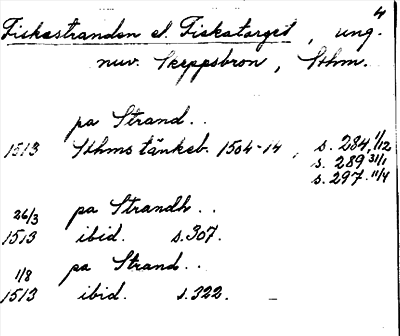 4
Fiskestranden el. Fisketorget, ung.
nuv. Skeppsbron, Sthm.
pa Strand..
1513 Sthms tänkeb. 1504-14, s. 284, 1/12
s. 289 31/1
s. 297. 11/4
26/3 pa Strandh..
1513 ibid. s. 307.
1/8 pa Strand..
1513 ibid. s. 322.